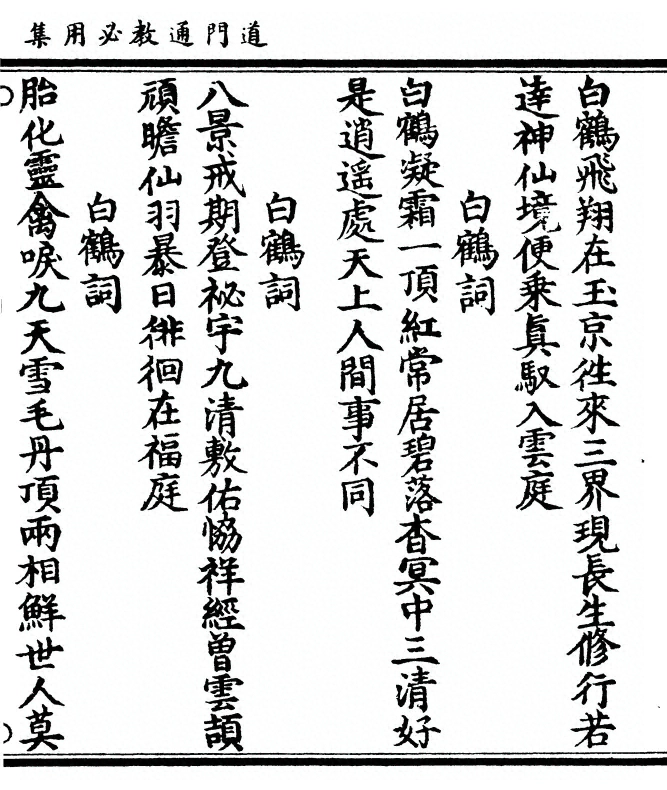 道門通教必用集
白鶴飛翔在玉京徃來三界現長生修行若
達神仙境便乗真馭入雲庭
白鶴詞
白鶴凝霜一頂紅常居碧落杳冥中三清好
是逍遥處天上人間事不同
白鶴詞
八景戒期登祕宇九清敷佑恊祥經曾雲頡
頏瞻仙羽暴日徘徊在福庭
白鶴詞
胎化靈禽唳九天雪毛丹頂兩相鮮世人莫